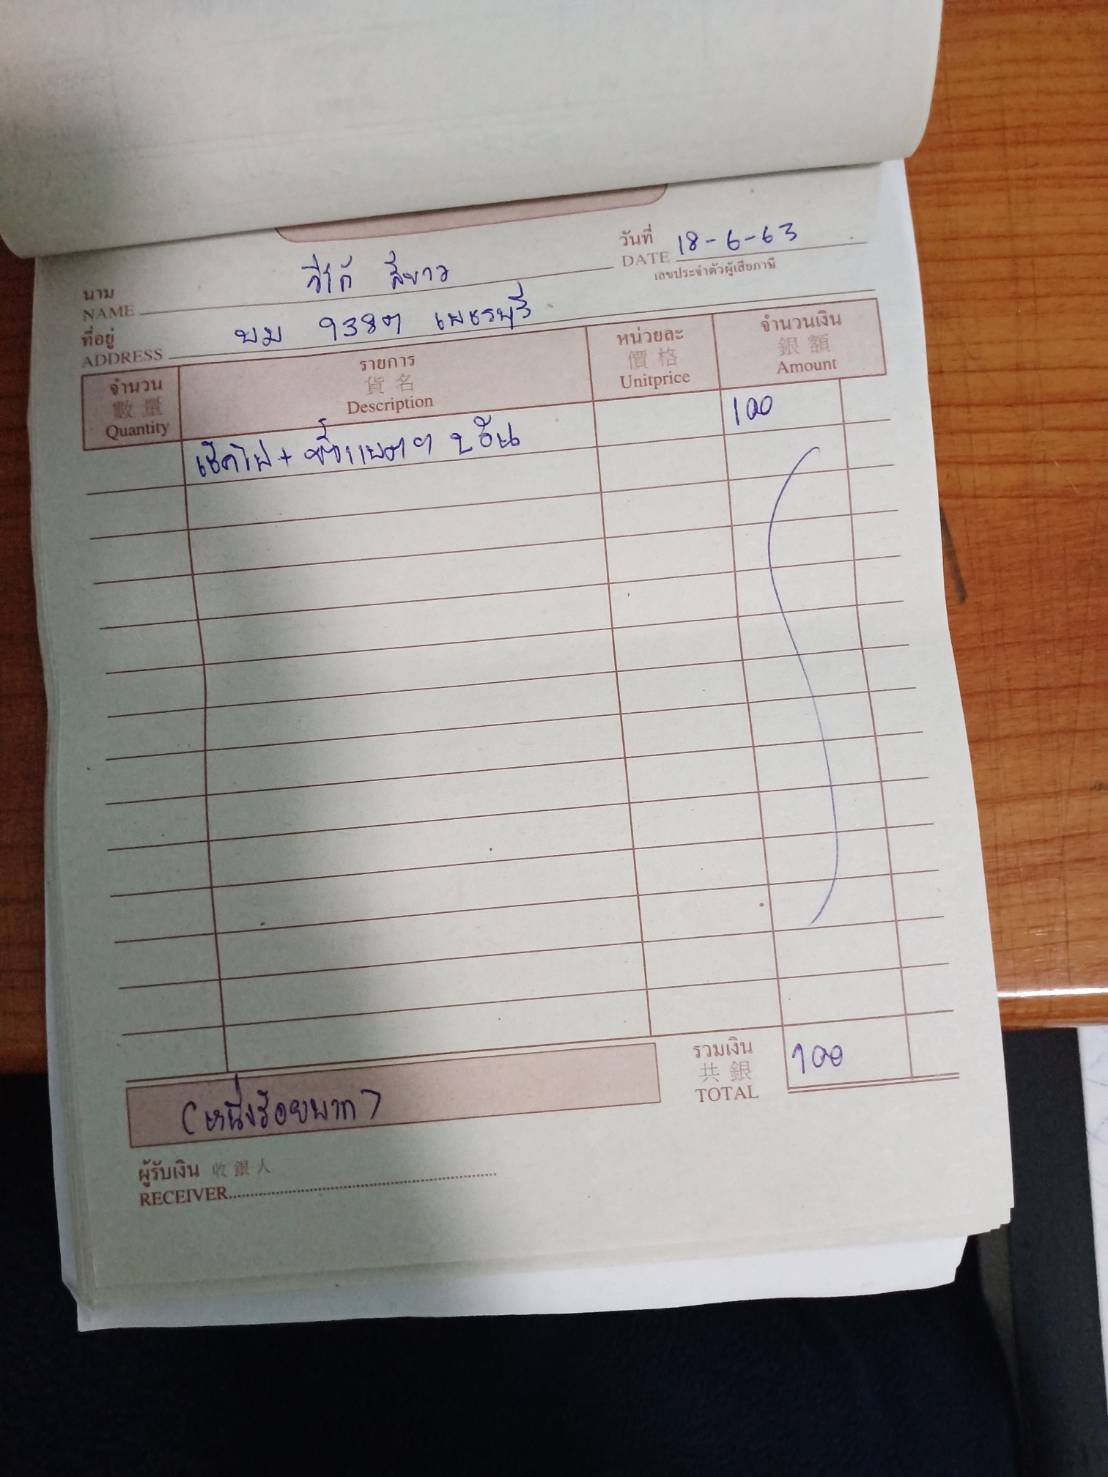 นาม
NAME วีโก้ สีขาว
วันที่
DATE 18-6-63
เลขประจำตัวผู้เสียภาษี
ที่อยู่
ADDRESS บม 9387 เพชรบุรี
จำนวน 數量 Quantity
รายการ 貨名 Description
หน่วยละ 價格 Unitprice
จำนวนเงิน 銀額 Amount
เช็คไฟ + 100
(หนึ่งร้อยบาท)
รวมเงิน
共銀
TOTAL 100
ผู้รับเงิน 收銀人
RECEIVER